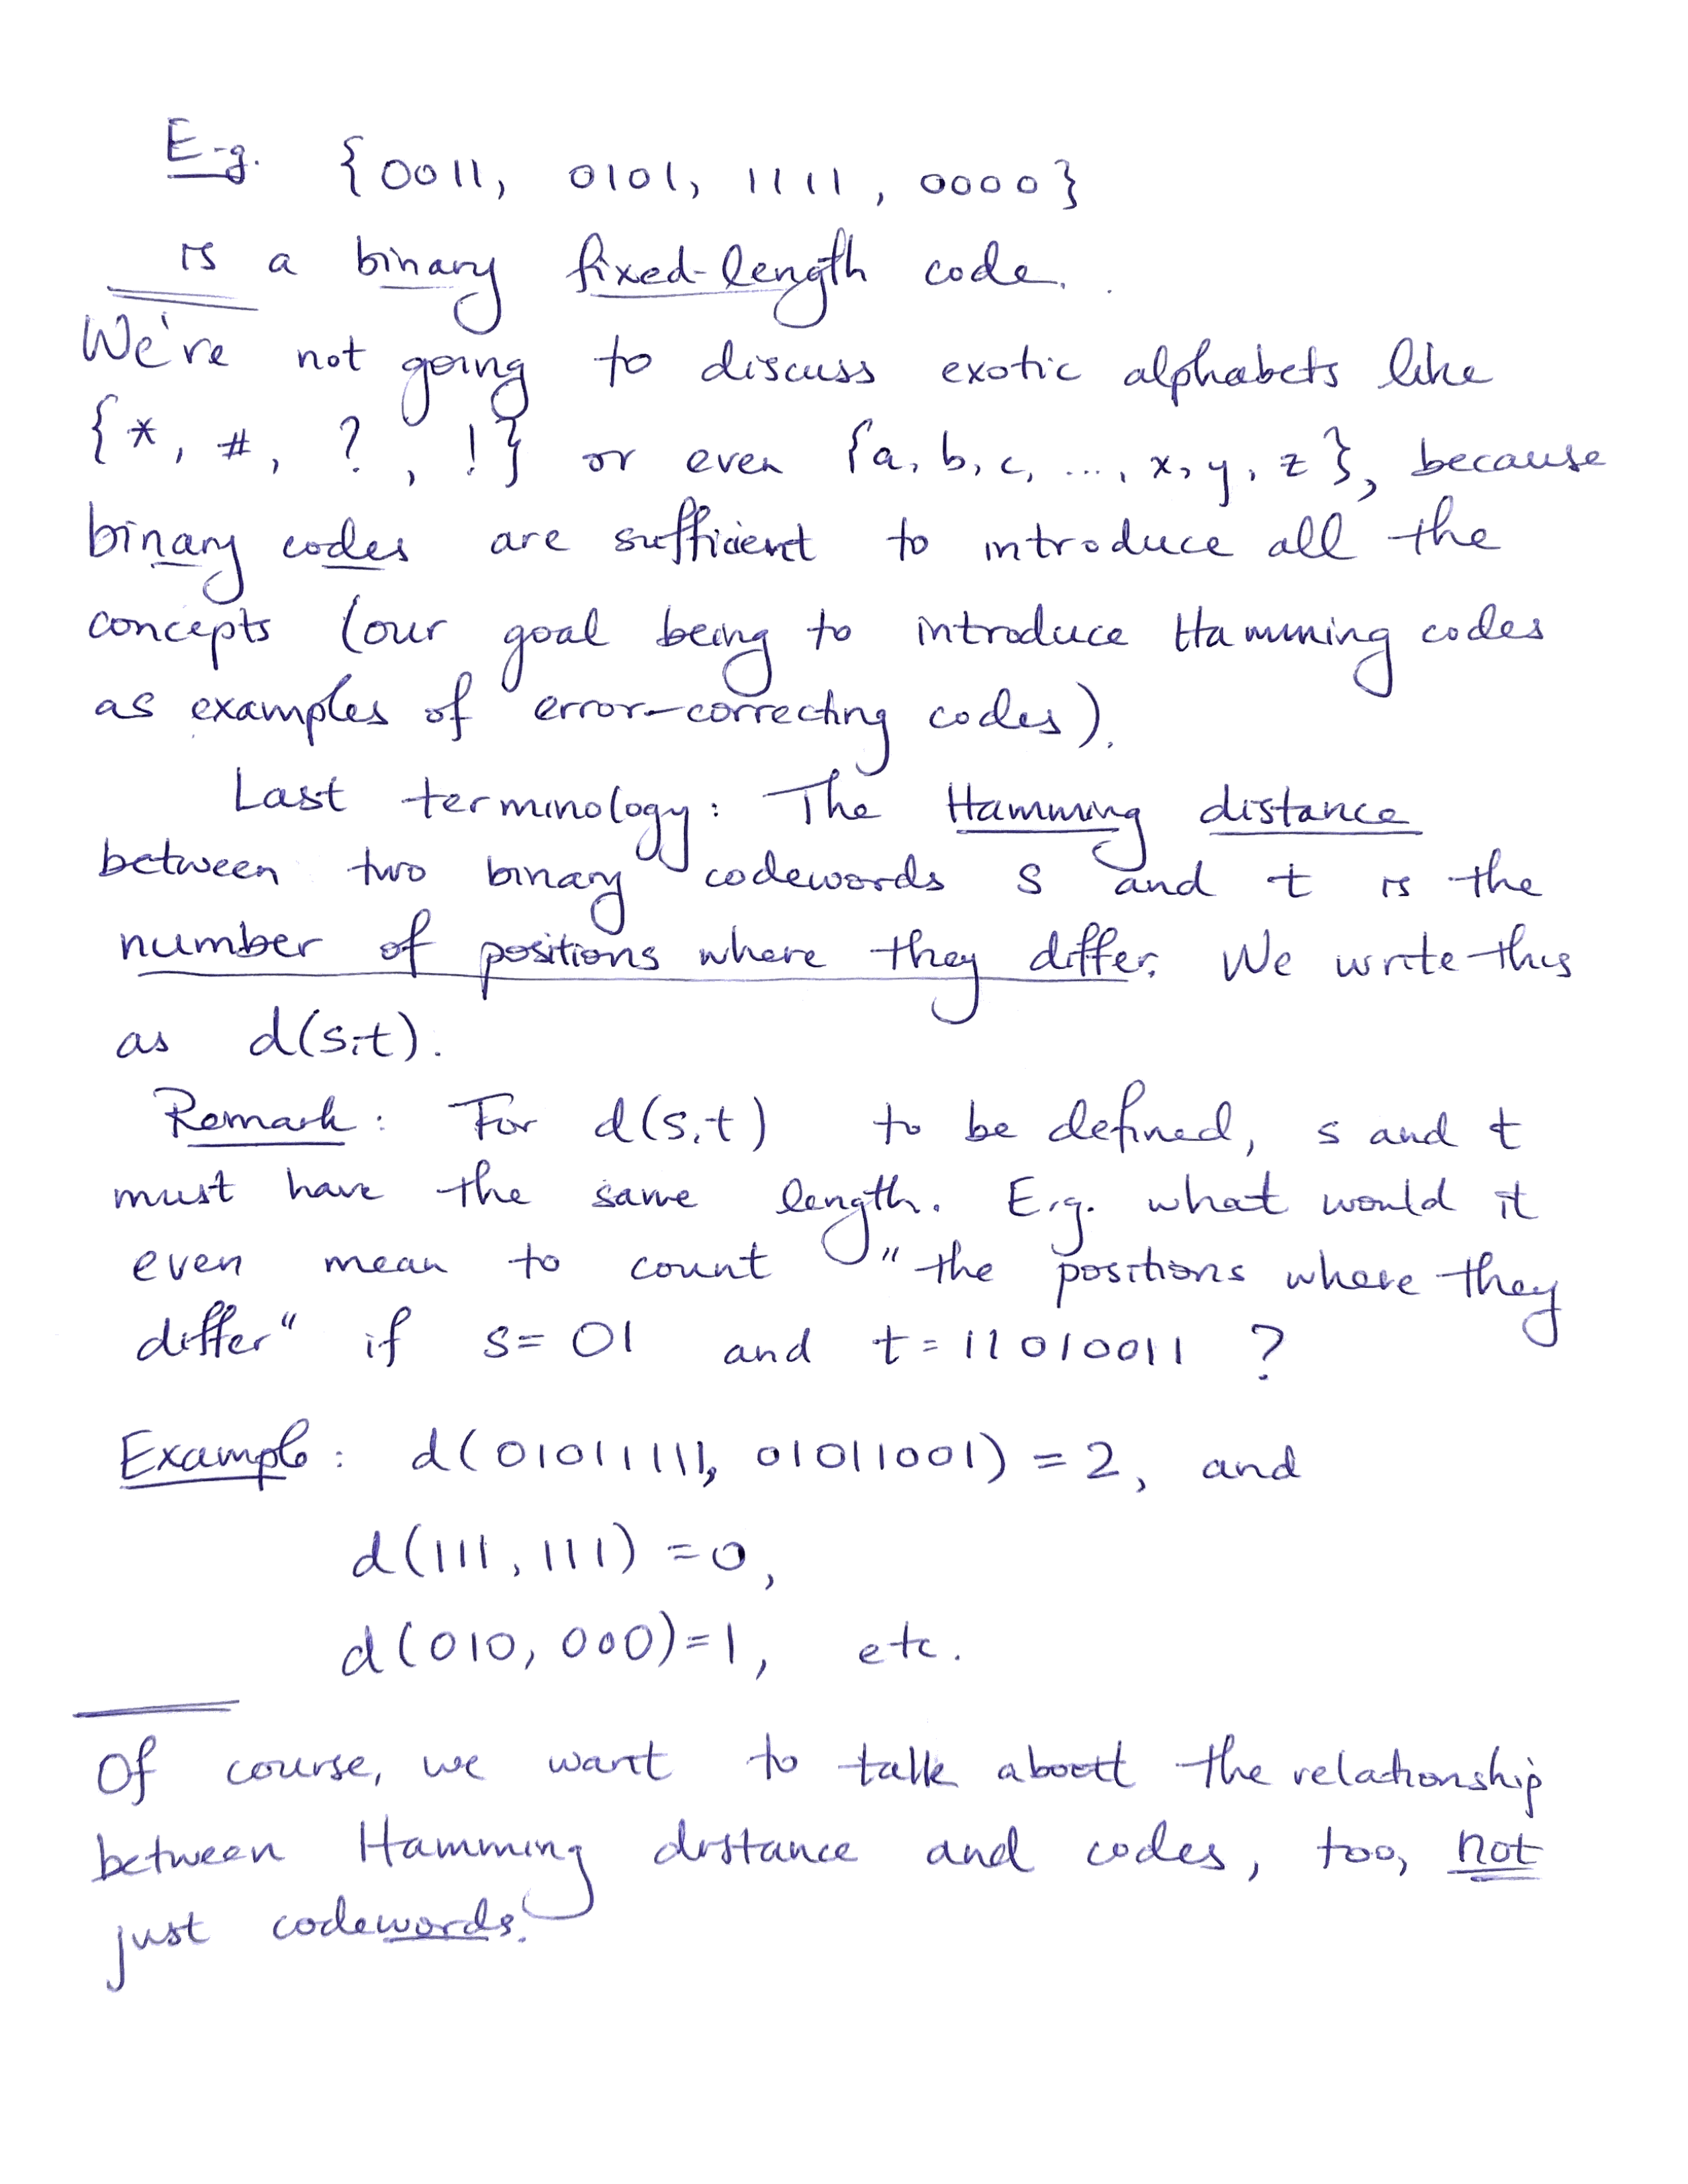 E.g. {0011, 0101, 1111, 0000}
is a binary fixed-length code.
We're not going to discuss exotic alphabets like
{*, #, ?, !} or even {a, b, c, ..., x, y, z}, because
binary codes are sufficient to introduce all the
concepts (our goal being to introduce Hamming codes
as examples of error-correcting codes).
Last terminology: The Hamming distance
between two binary codewords s and t is the
number of positions where they differ. We write this
as d(s,t).
Remark: For d(s,t) to be defined, s and t
must have the same length. E.g. what would it
even mean to count "the positions where they
differ" if s= 01 and t= 11010011 ?
Example: d(01011111, 01011001) = 2, and
d(111, 111) = 0,
d(010, 000)=1, etc.
Of course, we want to talk about the relationship
between Hamming distance and codes, too, not
just codewords.